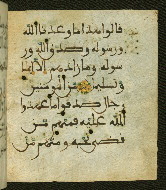 قالوا هذا ما وعدنا الله
ورسوله وصدق الله ور
سوله وما زادهم الا ايمنا
وتسليما من المومنين
رجال صدقوا ما عهدوا
الله عليه فمنهم من
قضى نحبه ومنهم من